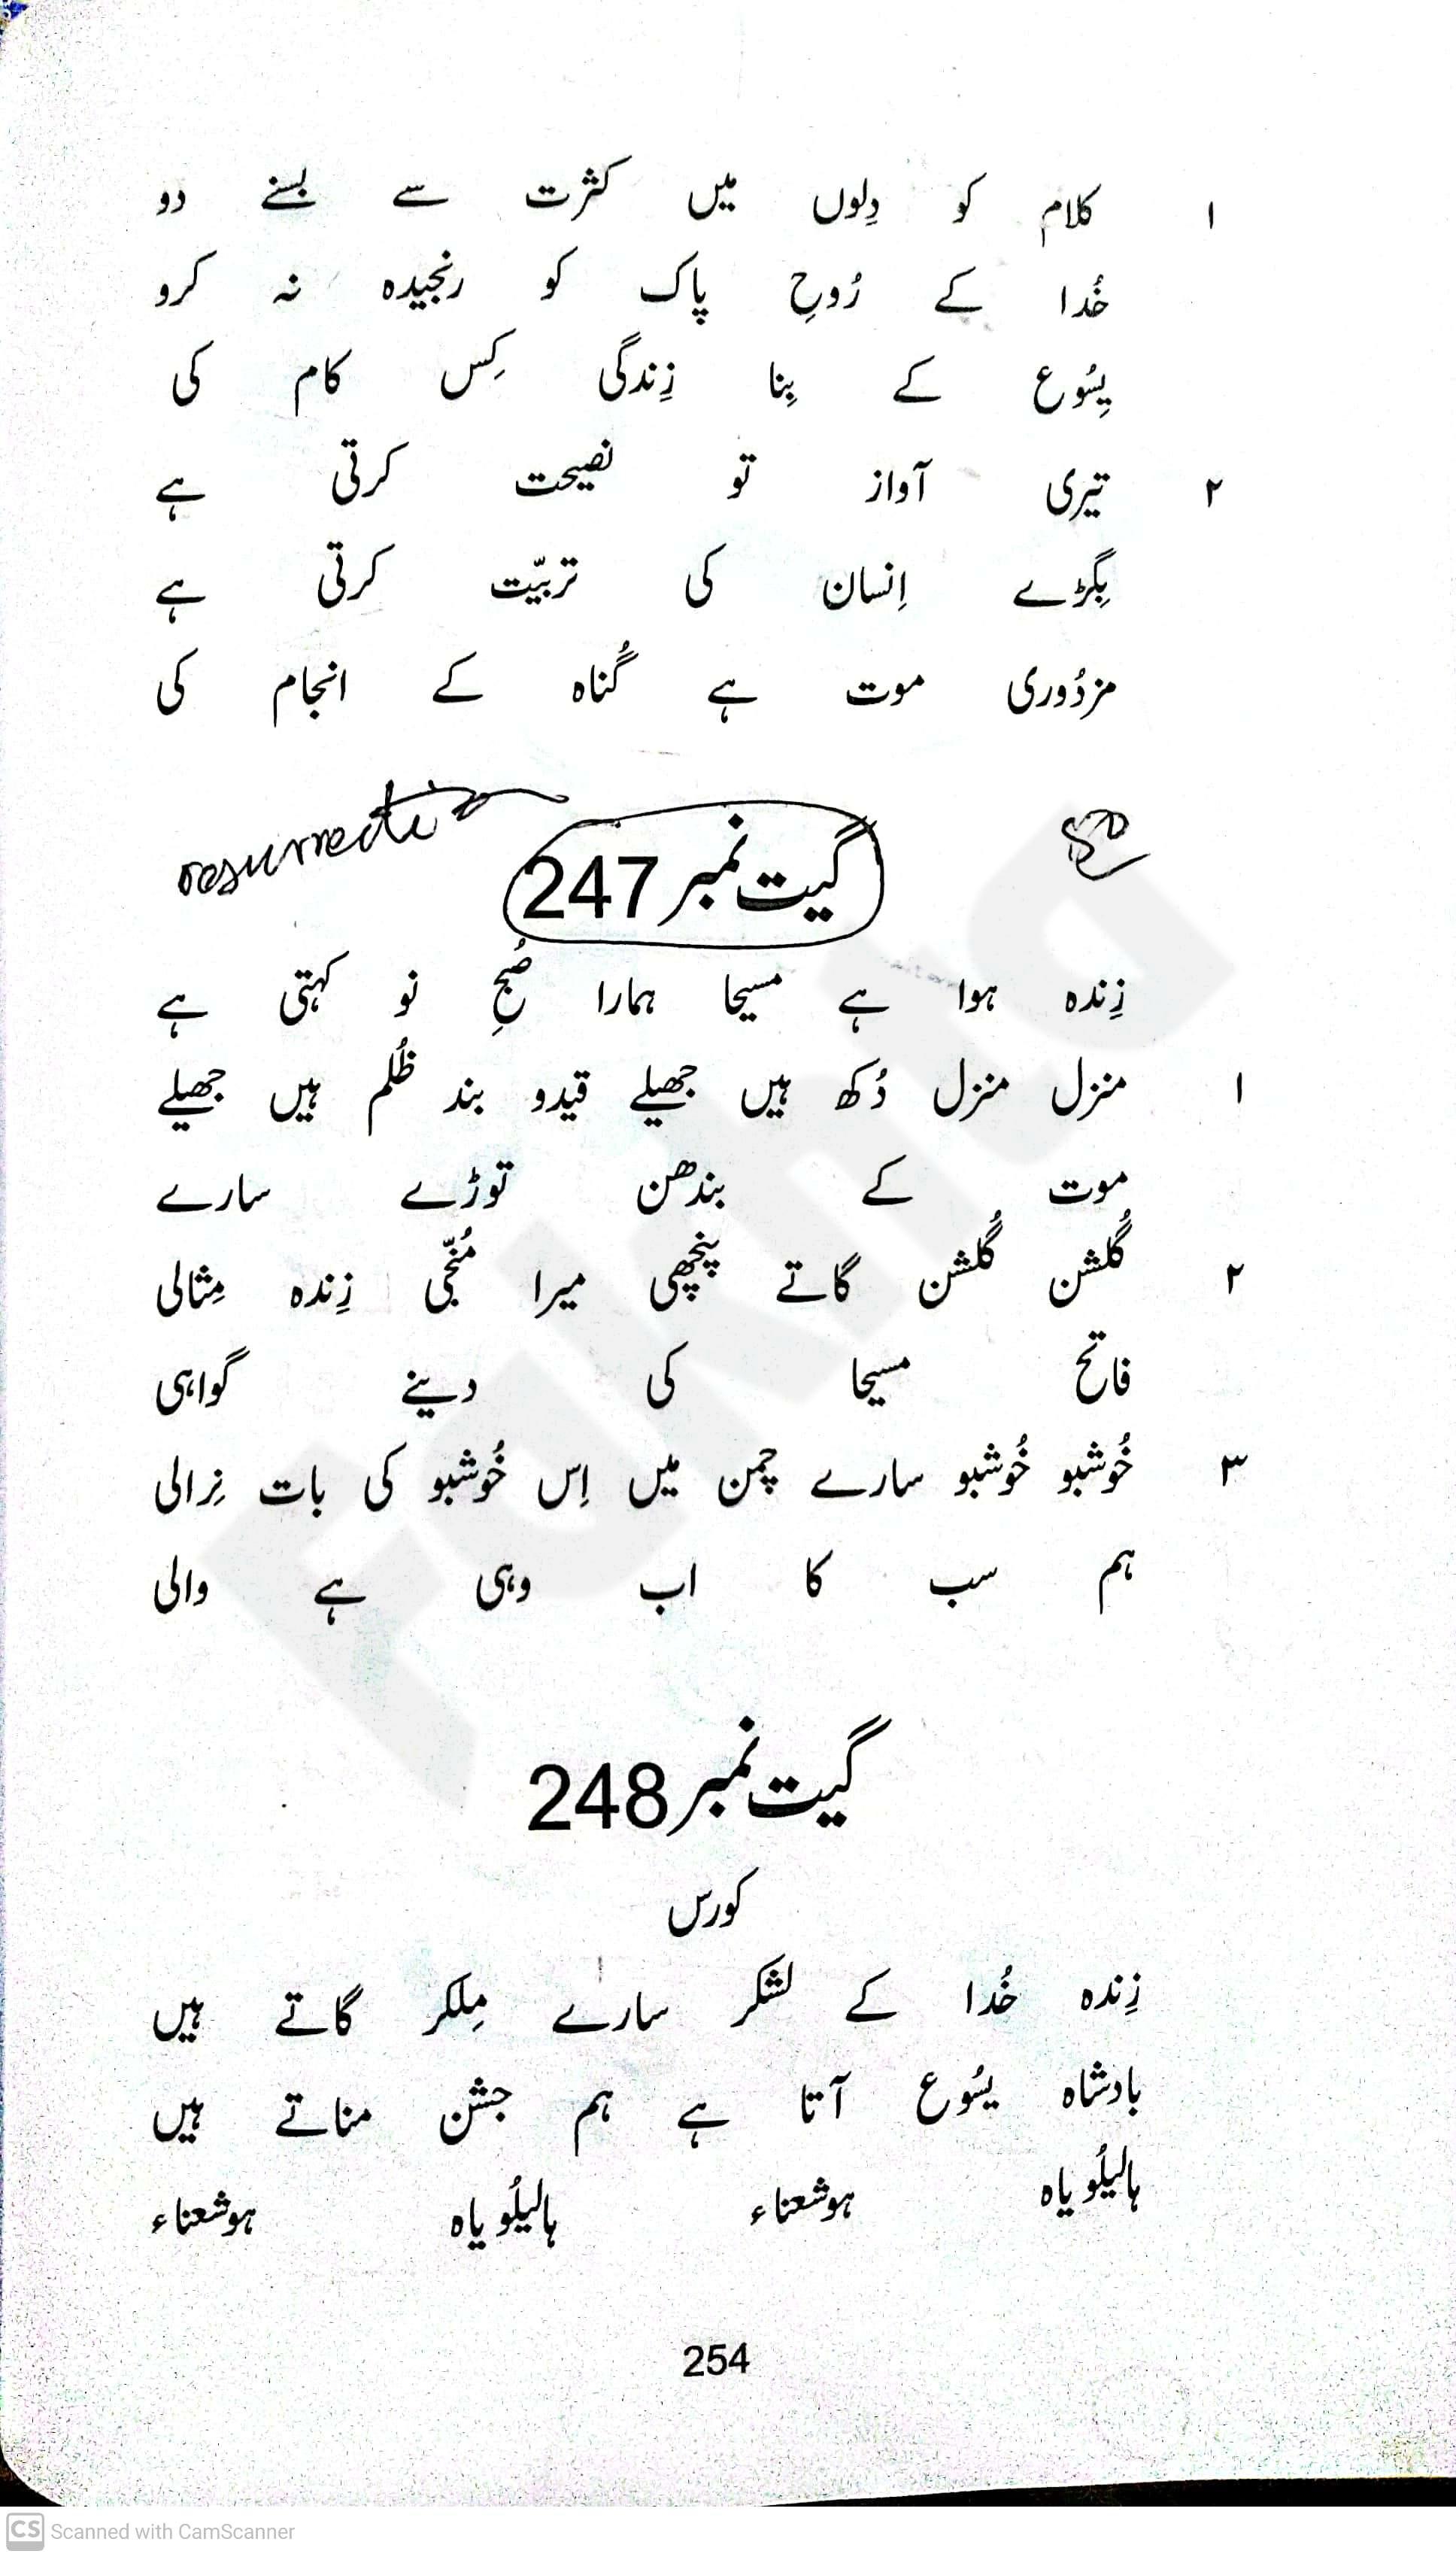 ۱ کلام کو دِلوں میں کثرت سے بسنے دو
خُدا کے رُوحِ پاک کو رنجیدہ نہ کرو
یِسُوع کے بِنا زِندگی کِس کام کی
۲ تیری آواز تو نصیحت کرتی ہے
بِگڑے اِنسان کی تربیّت کرتی ہے
مزدُوری موت ہے گُناہ کے انجام کی
resurrection
گیت نمبر 247
زِندہ ہوا ہے مسیحا ہمارا صُبحِ نو کہتی ہے
۱ منزل منزل دُکھ ہیں جھیلے قیدو بند ظُلم ہیں جھیلے
موت کے بندھن توڑے سارے
۲ گُلشن گُلشن گاتے پنچھی میرا مُنجّی زِندہ مِثالی
فاتح مسیحا کی دینے گواہی
۳ خُوشبو خُوشبو سارے چمن میں اِس خُوشبو کی بات نِرالی
ہم سب کا اب وہی ہے والی
گیت نمبر 248
کورس
زِندہ خُدا کے لشکر سارے مِلکر گاتے ہیں
بادشاہ یسُوع آتا ہے ہم جشن مناتے ہیں
ہالیلُویاہ ہوشعناء ہالیلُویاہ ہوشعناء
254
Fakhta
CS Scanned with CamScanner